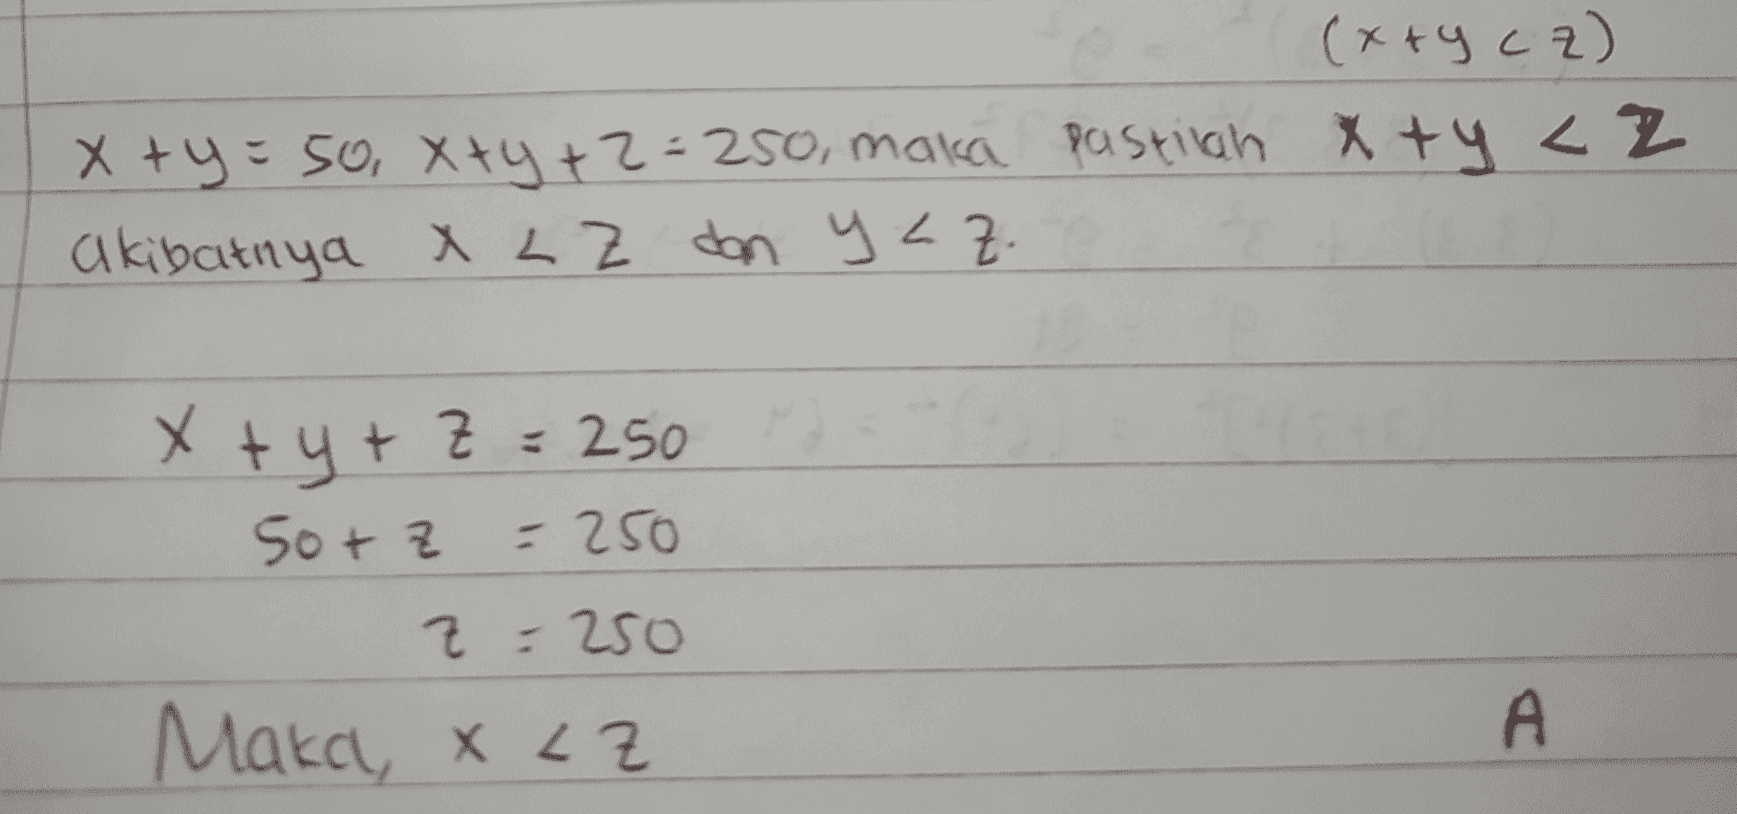 (x+y < z)
x + y = 50, x+y+z = 250, maka pastilah x + y < z
akibatnya x < z dan y < z.
x + y + z = 250
50 + z = 250
z = 250
Maka, x < z
A